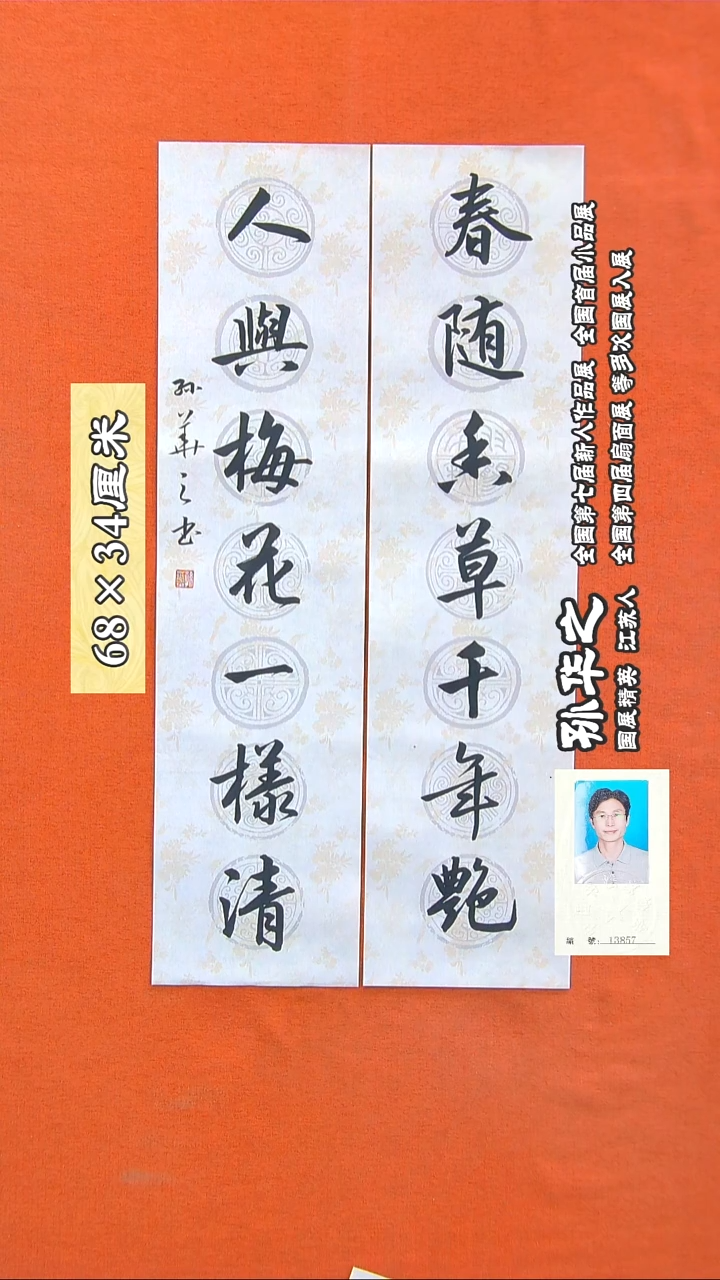 春随香草千年艶
人與梅花一樣清
孙華之书
68×34厘米
孙华之
国展精英 江苏人
全国第七届新人作品展 全国首届小品展
全国第四届扇面展 等多次国展入展
編 號: 13857